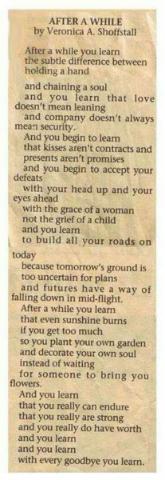 AFTER A WHILE
by Veronica A. Shoffstall
After a while you learn
the subtle difference between
holding a hand
and chaining a soul
and you learn that love
doesn't mean leaning
and company doesn't always
mean security.
And you begin to learn
that kisses aren't contracts and
presents aren't promises
and you begin to accept your
defeats
with your head up and your
eyes ahead
with the grace of a woman
not the grief of a child
and you learn
to build all your roads on
today
because tomorrow's ground is
too uncertain for plans
and futures have a way of
falling down in mid-flight.
After a while you learn
that even sunshine burns
if you get too much
so you plant your own garden
and decorate your own soul
instead of waiting
for someone to bring you
flowers.
And you learn
that you really can endure
that you really are strong
and you really do have worth
and you learn
and you learn
with every goodbye you learn.